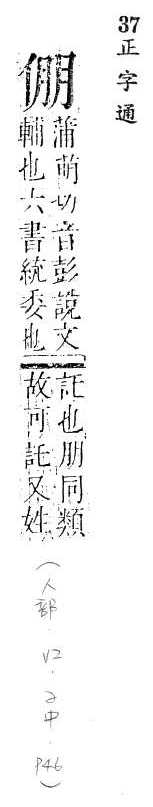 37正字通
倗
蒲萌切音彭說文
輔也六書統委也
託也朋同類
故可託又姓
(人部.V2.子中.P46)